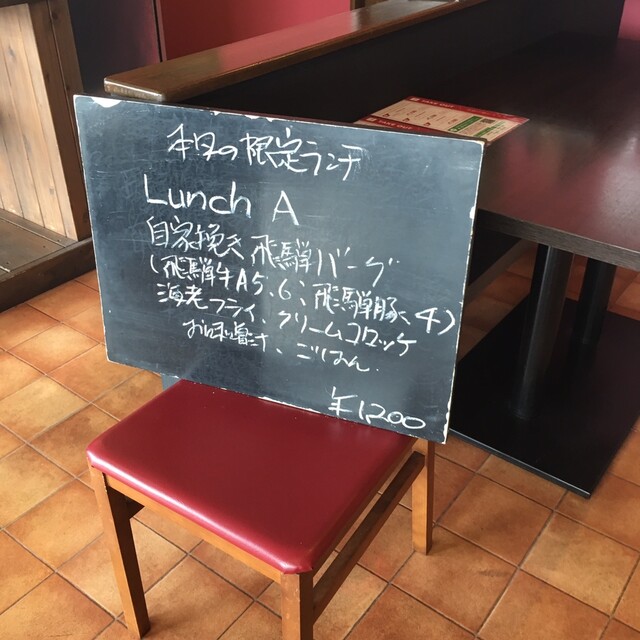 本日の限定ランチ
Lunch A
自家挽き飛騨バーグ
(飛騨牛A5、6、飛騨豚、4)
海老フライ クリームコロッケ
お味噌汁、ごはん.
¥1200